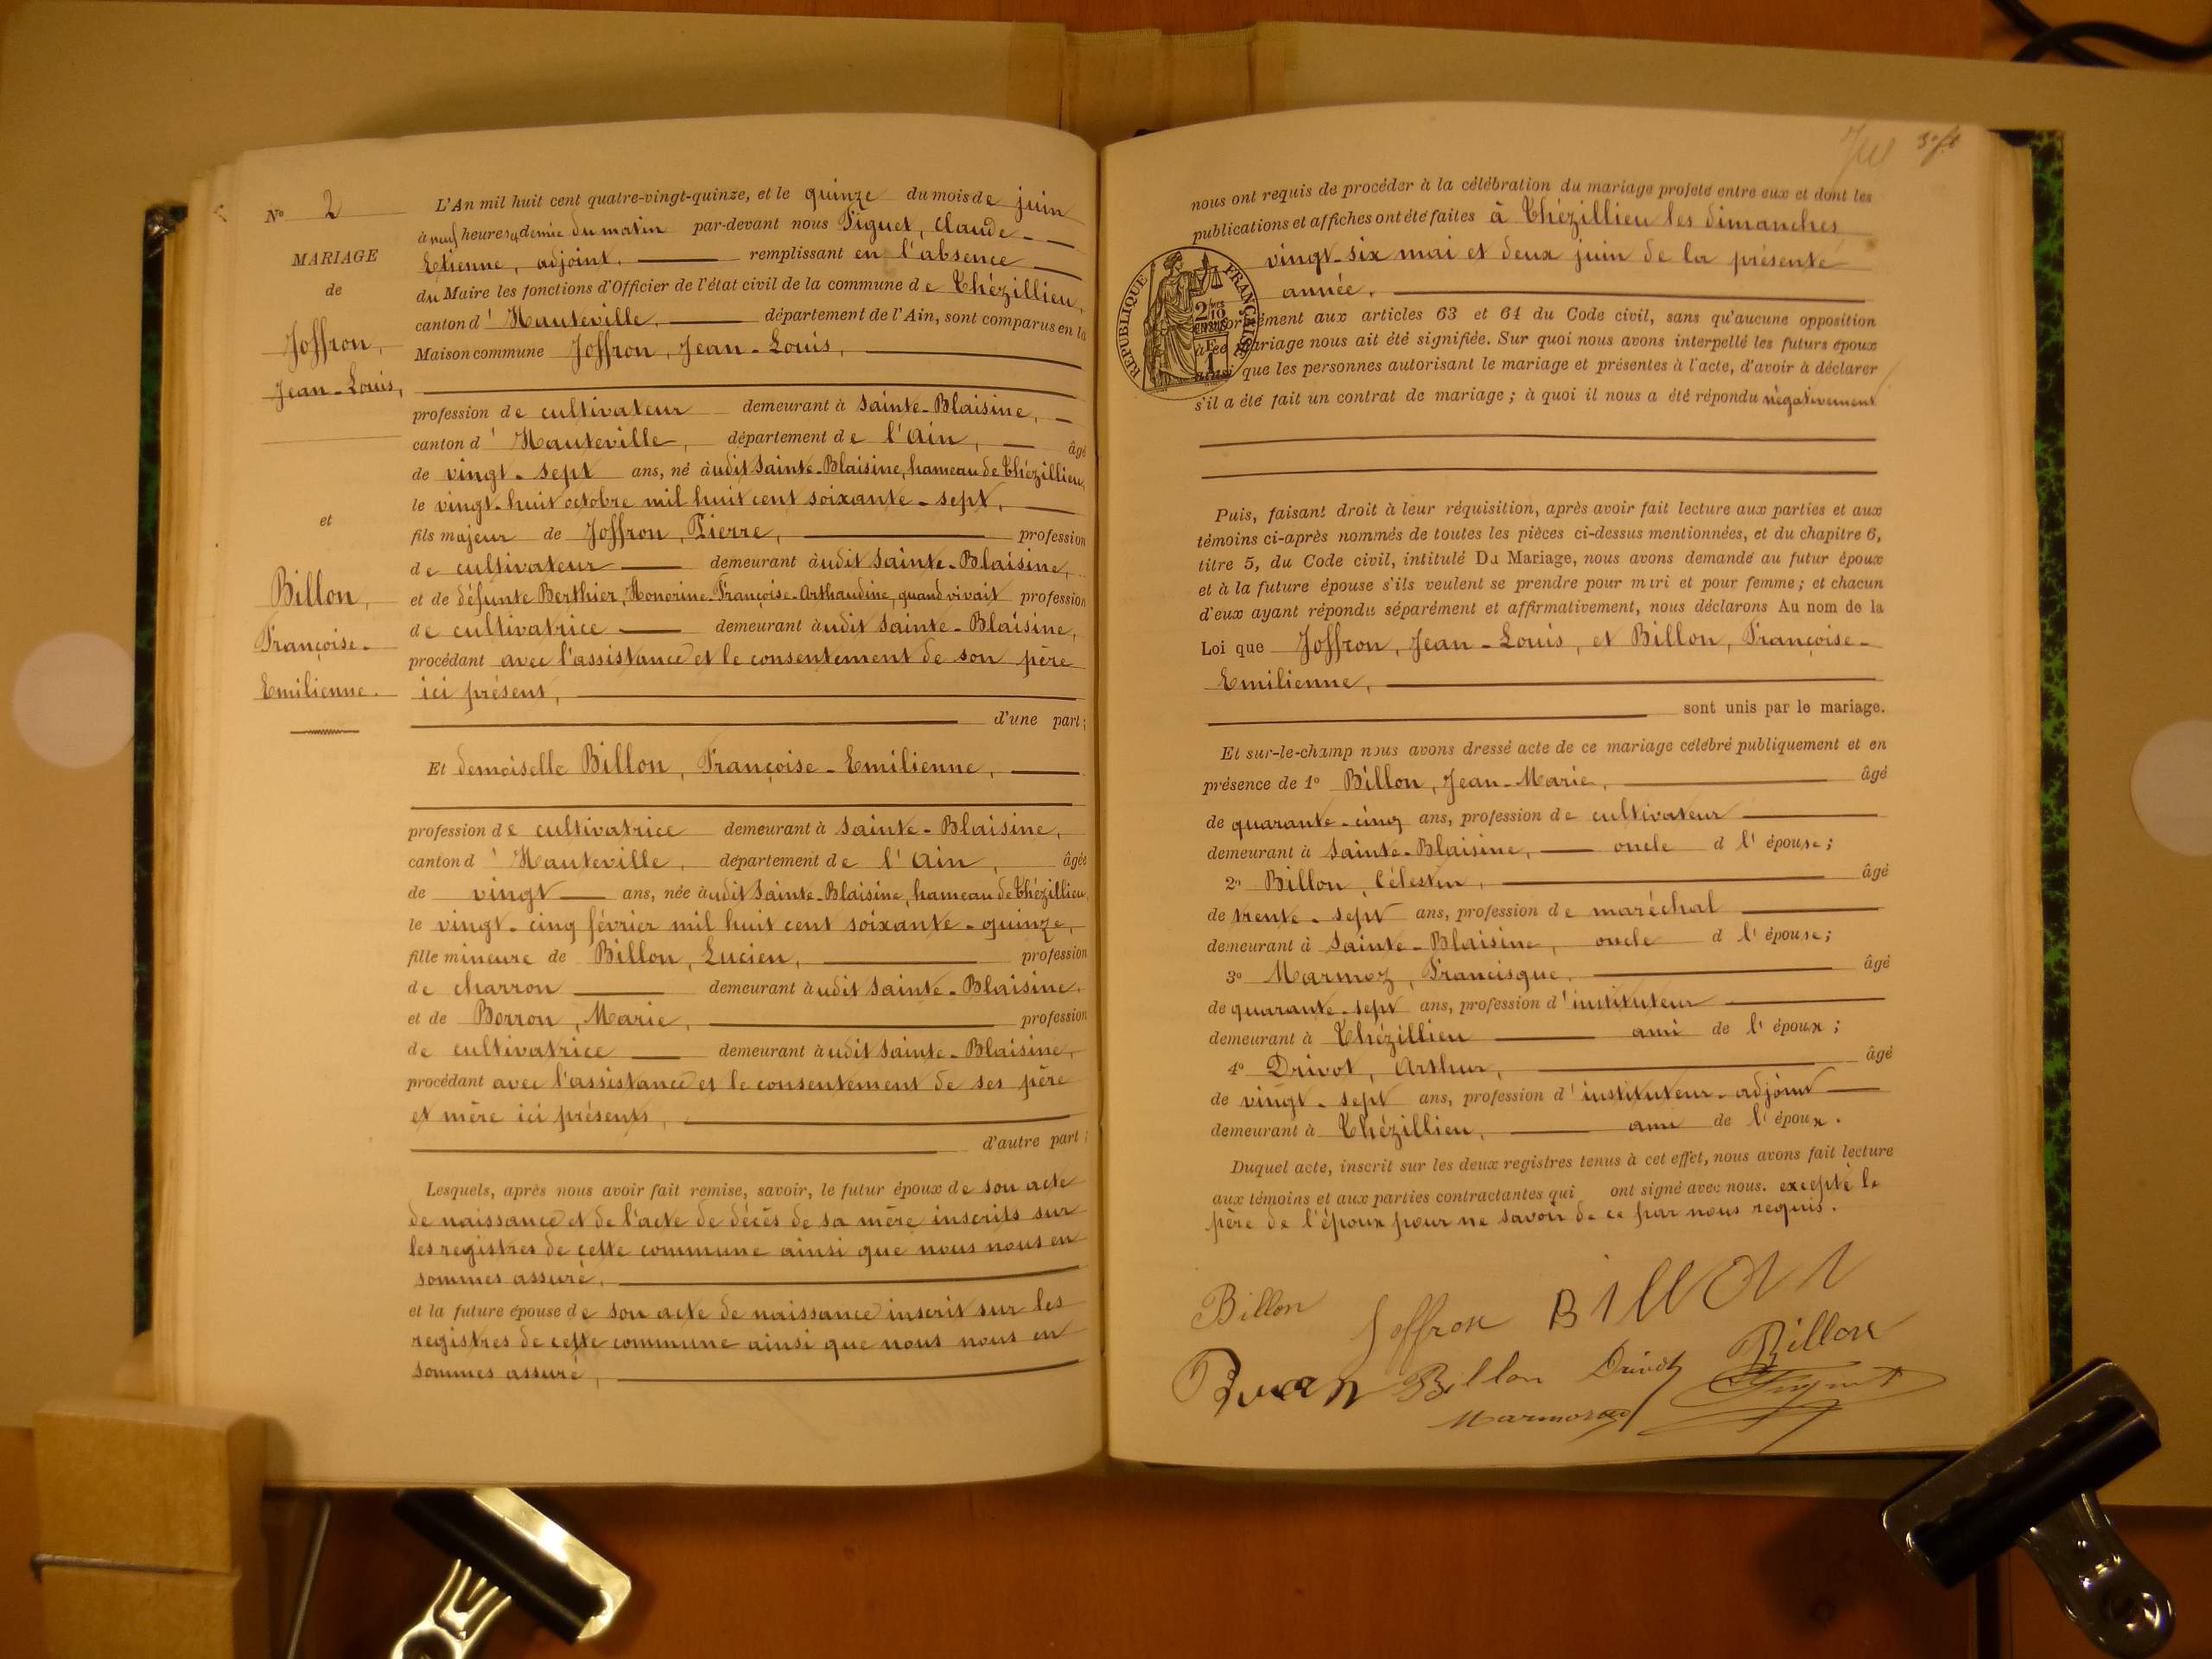 N° 2
MARIAGE
de
Joffron,
Jean-Louis,
et
Billon,
Françoise-
Emilienne.
L'An mil huit cent quatre-vingt-quinze, et le quinze du mois de juin
à neuf heures & demie du matin par-devant nous Figuet, Claude-
Etienne, adjoint, remplissant en l'absence
du Maire les fonctions d'Officier de l'état civil de la commune de Thézillieu,
canton d'Hauteville, département de l'Ain, sont comparus en la
Maison commune Joffron, Jean-Louis,
profession de cultivateur demeurant à Sainte-Blaisine,
canton d'Hauteville, département de l'Ain, âgé
de vingt-sept ans, né audit Sainte-Blaisine, hameau de Thézillieu,
le vingt-huit octobre mil huit cent soixante-sept,
fils majeur de Joffron, Pierre, profession
de cultivateur demeurant audit Sainte-Blaisine,
et de défunte Berthier, Honorine-Françoise-Arthaudine, quand vivait profession
de cultivatrice demeurant audit Sainte-Blaisine,
procédant avec l'assistance et le consentement de son père
ici présent,
d'une part;
Et demoiselle Billon, Françoise-Emilienne,
profession de cultivatrice demeurant à Sainte-Blaisine,
canton d'Hauteville, département de l'Ain, âgée
de vingt ans, née audit Sainte-Blaisine, hameau de Thézillieu,
le vingt-cinq février mil huit cent soixante-quinze,
fille mineure de Billon, Lucien, profession
de charron demeurant audit Sainte-Blaisine.
et de Borron, Marie, profession
de cultivatrice demeurant audit Sainte-Blaisine,
procédant avec l'assistance et le consentement de ses père
et mère ici présents,
d'autre part;
Lesquels, après nous avoir fait remise, savoir, le futur époux de son acte
de naissance et de l'acte de décès de sa mère inscrits sur
les registres de cette commune ainsi que nous nous en
sommes assuré,
et la future épouse de son acte de naissance inscrit sur les
registres de cette commune ainsi que nous nous en
sommes assuré,
nous ont requis de procéder à la célébration du mariage projeté entre eux et dont les
publications et affiches ont été faites à Thézillieu les dimanches
vingt-six mai et deux juin de la présente
année,
RÉPUBLIQUE FRANÇAISE
conformément aux articles 63 et 64 du Code civil, sans qu'aucune opposition
à ce mariage nous ait été signifiée. Sur quoi nous avons interpellé les futurs époux
ainsi que les personnes autorisant le mariage et présentes à l'acte, d'avoir à déclarer
s'il a été fait un contrat de mariage; à quoi il nous a été répondu négativement
Puis, faisant droit à leur réquisition, après avoir fait lecture aux parties et aux
témoins ci-après nommés de toutes les pièces ci-dessus mentionnées, et du chapitre 6,
titre 5, du Code civil, intitulé Du Mariage, nous avons demandé au futur époux
et à la future épouse s'ils veulent se prendre pour mari et pour femme; et chacun
d'eux ayant répondu séparément et affirmativement, nous déclarons Au nom de la
Loi que Joffron, Jean-Louis, et Billon, Françoise-
Emilienne,
sont unis par le mariage.
Et sur-le-champ nous avons dressé acte de ce mariage célébré publiquement et en
présence de 1° Billon, Jean-Marie, âgé
de quarante-cinq ans, profession de cultivateur
demeurant à Sainte-Blaisine, oncle d l'épouse;
2° Billon, Célestin, âgé
de trente-sept ans, profession de maréchal
demeurant à Sainte-Blaisine, oncle d l'épouse;
3° Marmoz, Francisque, âgé
de quarante-sept ans, profession d'instituteur
demeurant à Thézillieu ami de l'époux;
4° Drivot, Arthur, âgé
de vingt-sept ans, profession d'instituteur-adjoint
demeurant à Thézillieu, ami de l'époux.
Duquel acte, inscrit sur les deux registres tenus à cet effet, nous avons fait lecture
aux témoins et aux parties contractantes qui ont signé avec nous. excepté le
père de l'époux pour ne savoir de ce par nous requis.
Billon Joffron Billon
Billon Drivot Billon
Marmoz Figuet